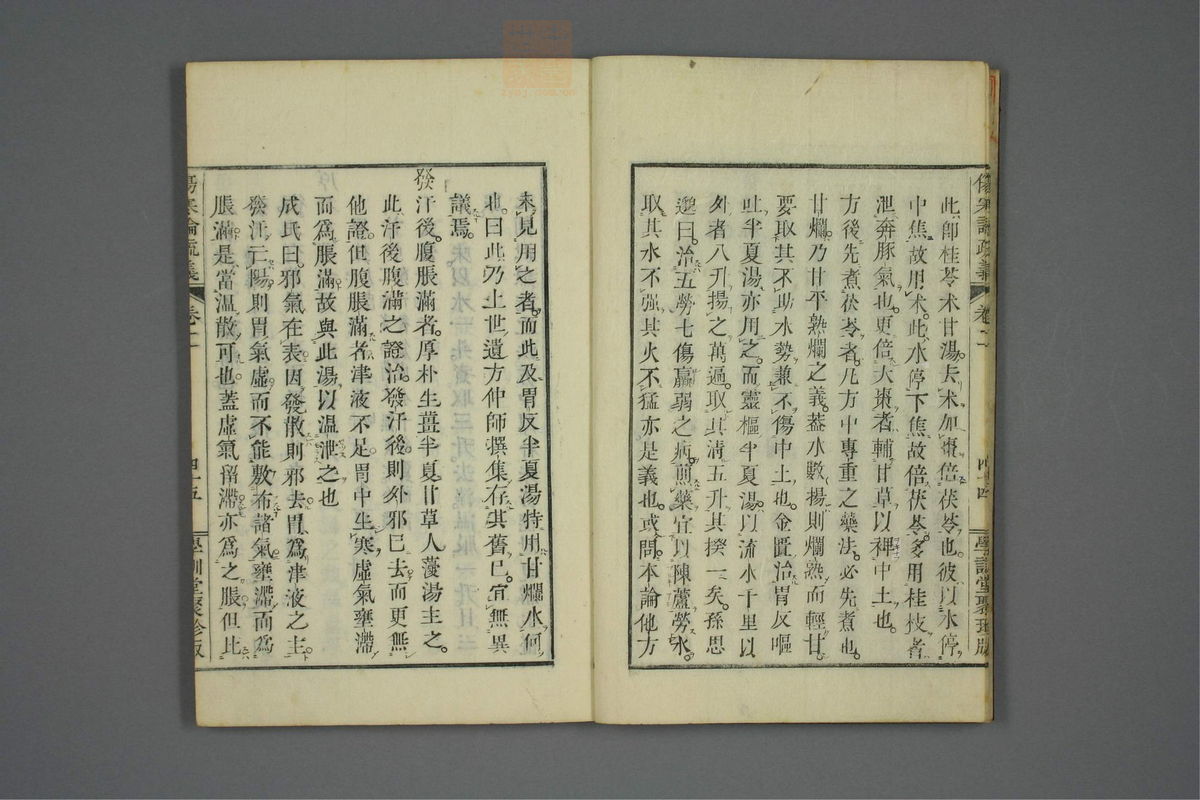 此卽桂苓朮甘湯去朮加棗倍茯苓也彼以水停
中焦故用朮此水停下焦故倍茯苓多用桂枝者
泄奔豚氣也更倍大棗者輔甘草以裨中土也
方後先煮茯苓者凡方中專重之藥法必先煮也
甘爛乃甘平熟爛之義蓋水數揚則爛熟而輕甘
要取其不助水勢兼不傷中土也金匱治胃反嘔
吐半夏湯亦用之而靈樞半夏湯以流水千里以
外者八升揚之萬遍取其清五升其揆一矣孫思
邈曰治五勞七傷羸弱之病煎藥宜以陳蘆勞水
取其水不强其火不猛亦是義也或問本論他方
傷寒論疏義
卷二
四十四
學訓堂聚珍版
未見用之者而此及胃反半夏湯特用甘爛水何
也曰此乃上世遺方仲師撰集存其舊已宜無異
議焉
發汗後腹脹滿者厚朴生薑半夏甘草人薓湯主之
此汗後腹滿之證治發汗後則外邪已去而更無
他證但腹脹滿者津液不足胃中生寒虛氣壅滯
而爲脹滿故與此湯以温泄之也
成氏曰邪氣在表因發散則邪去胃爲津液之主
發汗亡陽則胃氣虛而不能敷布諸氣壅滯而爲
脹滿是當温散可也蓋虛氣留滯亦爲之脹但比
傷寒論疏義
卷二
四十五
學訓堂聚珍版